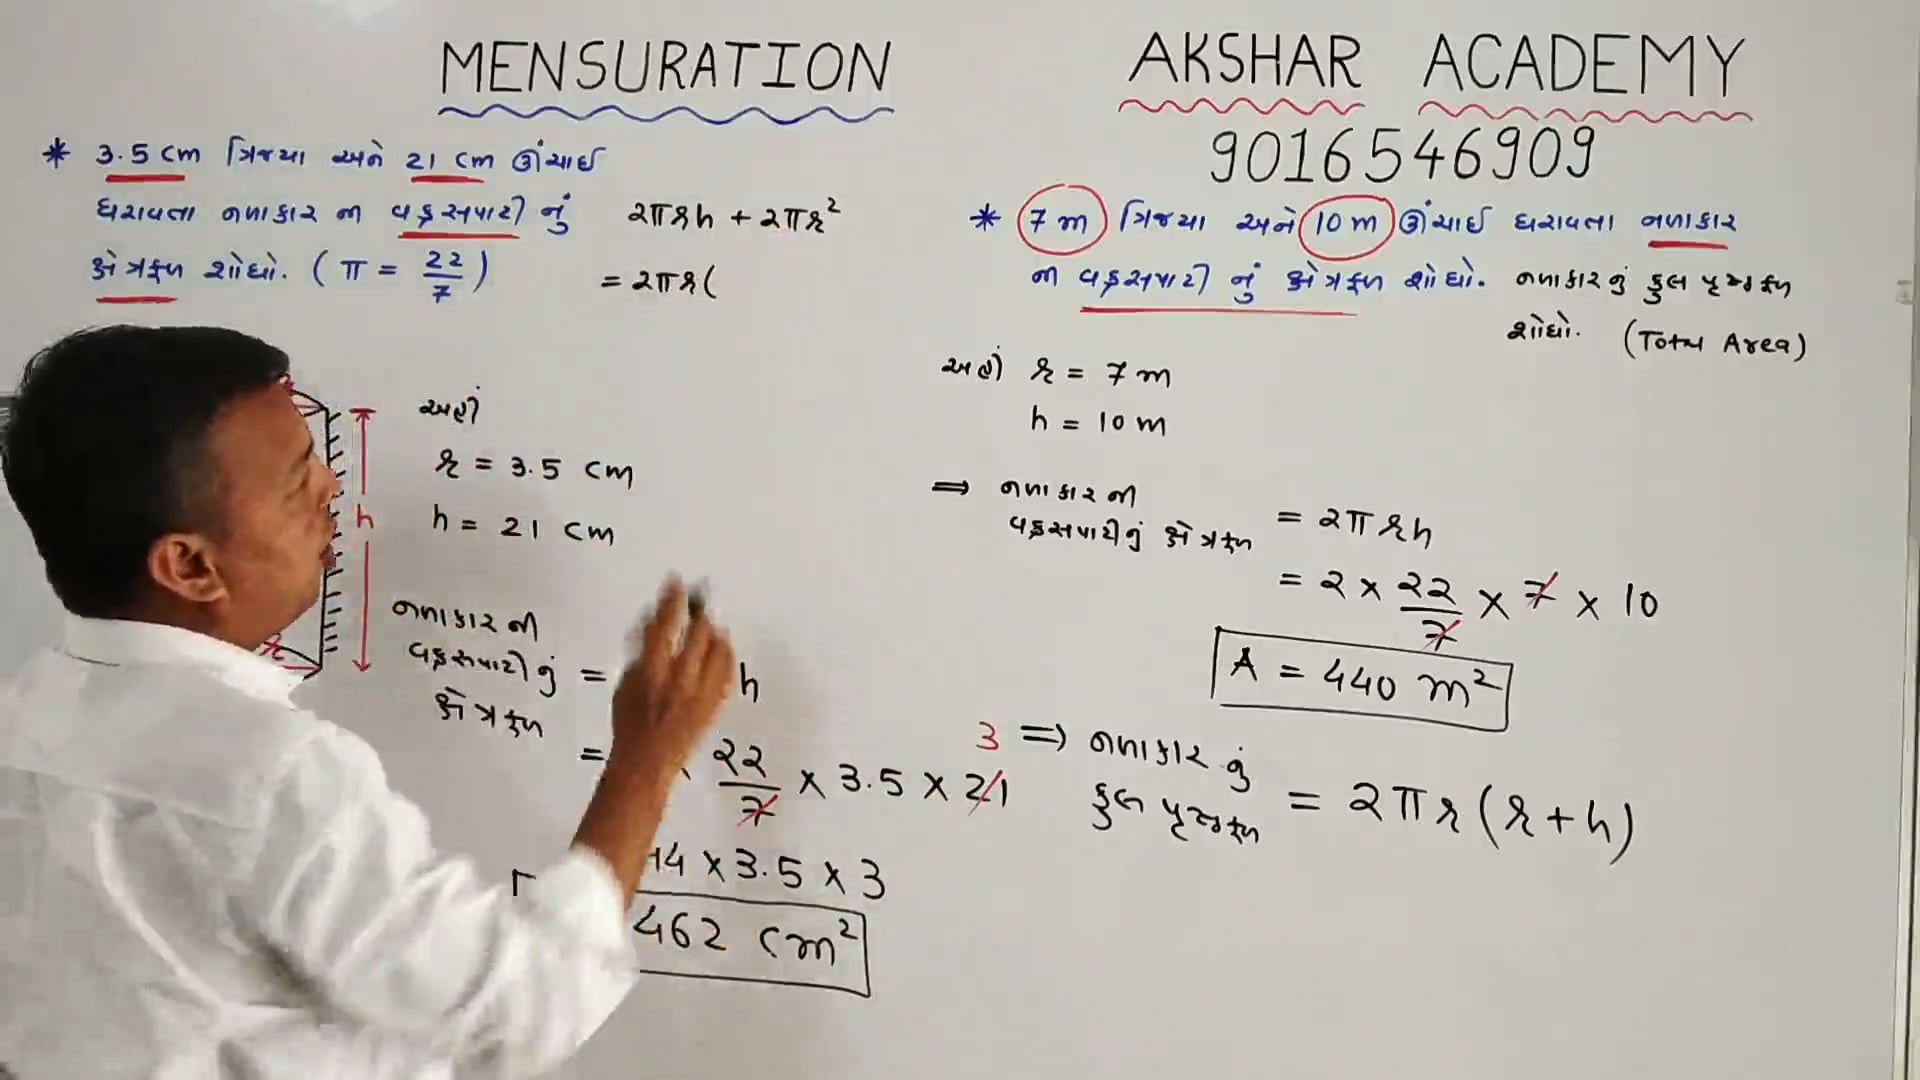 MENSURATION
AKSHAR ACADEMY
9016546909
* 3.5 cm ત્રિજ્યા અને 21 cm ઊંચાઈ
ધરાવતા નળાકાર ના વક્રસપાટી નું
ક્ષેત્રફળ શોધો. (π = 22/7)
2πrh + 2πr²
= 2πr(
h
r
અહીં
r = 3.5 cm
h = 21 cm
નળાકાર ની
વક્રસપાટી નું =
ક્ષેત્રફળ
h
= × 22/7 × 3.5 × 21
3
44 × 3.5 × 3
462 cm²
* 7 m ત્રિજ્યા અને 10 m ઊંચાઈ ધરાવતા નળાકાર
ના વક્રસપાટી નું ક્ષેત્રફળ શોધો. નળાકાર નું કુલ પૃષ્ઠફળ
શોધો. (Total Area)
અહીં r = 7 m
h = 10 m
⇒ નળાકાર ની
વક્રસપાટી નું ક્ષેત્રફળ = 2πrh
= 2 × 22/7 × 7 × 10
A = 440 m²
⇒ નળાકાર નું
કુલ પૃષ્ઠફળ = 2πr(r+h)